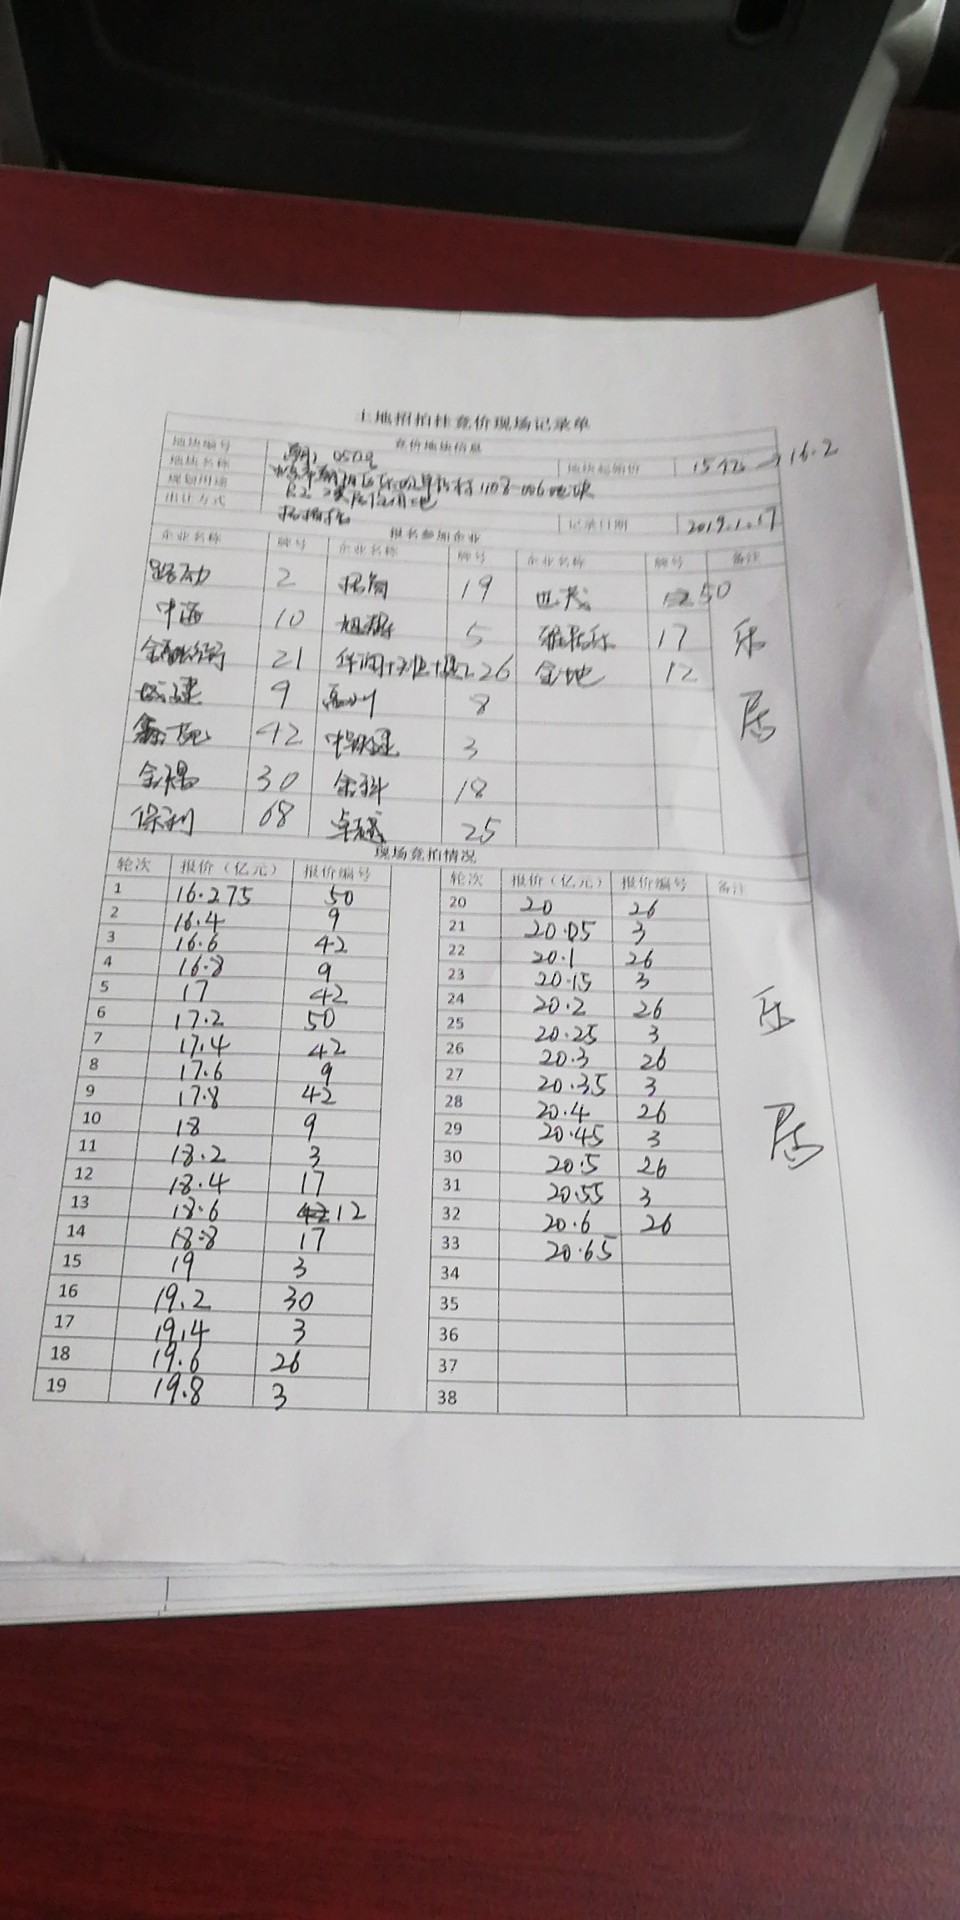 土地招拍挂竞价现场记录单
竞价地块信息
地块编号
地块名称 地块起始价 15亿 → 16.2
规划用途 1108-006地块
出让方式 R2二类居住用地
招拍挂 记录日期 2019.1.17
报名参加企业
企业名称 牌号 企业名称 牌号 企业名称 牌号 备注
2 19 50
中海 10 旭辉 5 雅居乐 17 乐
21 26 金地 12
城建 9 8 居
42 3
30 金科 18
保利 68 卓越 25
现场竞拍情况
轮次 报价（亿元） 报价编号 轮次 报价（亿元） 报价编号 备注
1 16.275 50 20 20 26
2 16.4 9 21 20.05 3
3 16.6 42 22 20.1 26
4 16.8 9 23 20.15 3
5 17 42 24 20.2 26 乐
6 17.2 50 25 20.25 3
7 17.4 42 26 20.3 26
8 17.6 9 27 20.35 3
9 17.8 42 28 20.4 26
10 18 9 29 20.45 3 居
11 18.2 3 30 20.5 26
12 18.4 17 31 20.55 3
13 18.6 12 32 20.6 26
14 18.8 17 33 20.65
15 19 3 34
16 19.2 30 35
17 19.4 3 36
18 19.6 26 37
19 19.8 3 38